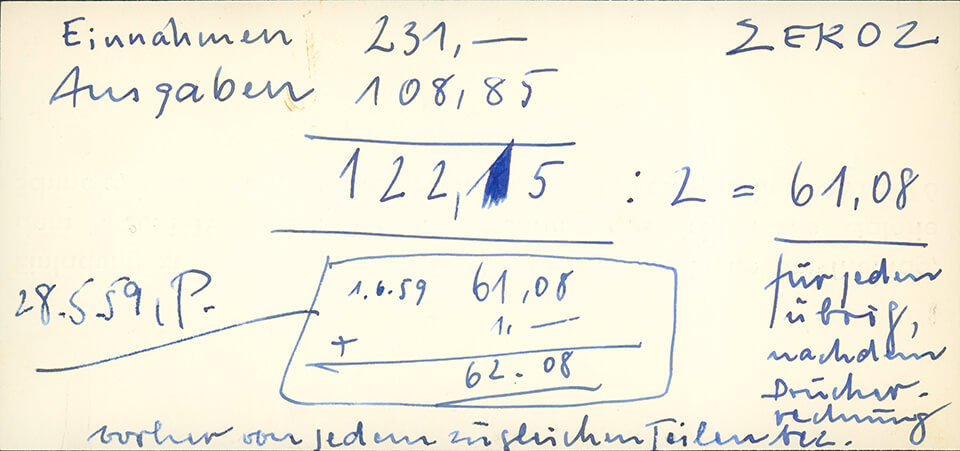 Einnahmen 231,— ZERO2
Ausgaben 108,85
122,15 : 2 = 61,08
28.5.59, P.
1.6.59 61,08
1,—
+
62.08
für jeden
übrig,
nachdem
Drucker-
rechnung
vorher von jedem zu gleichen Teilen bez.